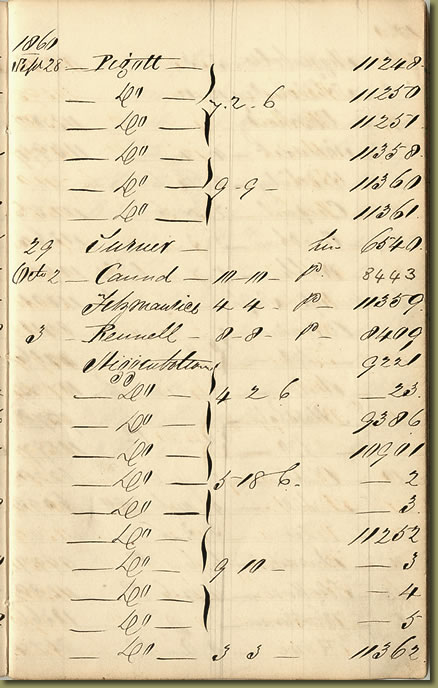 1860
Sept 28 — Pigott — 11248
— Do — 7. 2. 6 11250
— Do — 11251
— Do — 11358
— Do — 9 - 9 - 11360
— Do — 11361
29 Turner — 6540
Octo 2 — Caund — 10 - 10 - pd. 8443
Fitzmaurice 4 4 - pd - 11359
3 — Rennell — 8 - 8 - pd - 8409
9221
— Do — 4 2 6 — 23
— Do — 9386
— Do — 10901
— Do — 5 - 18 6. — 2
— Do — — 3
— Do — 11252
— Do — 9 10 — — 3
— Do — — 4
— Do — — 5
— Do — 3 3 — 11362